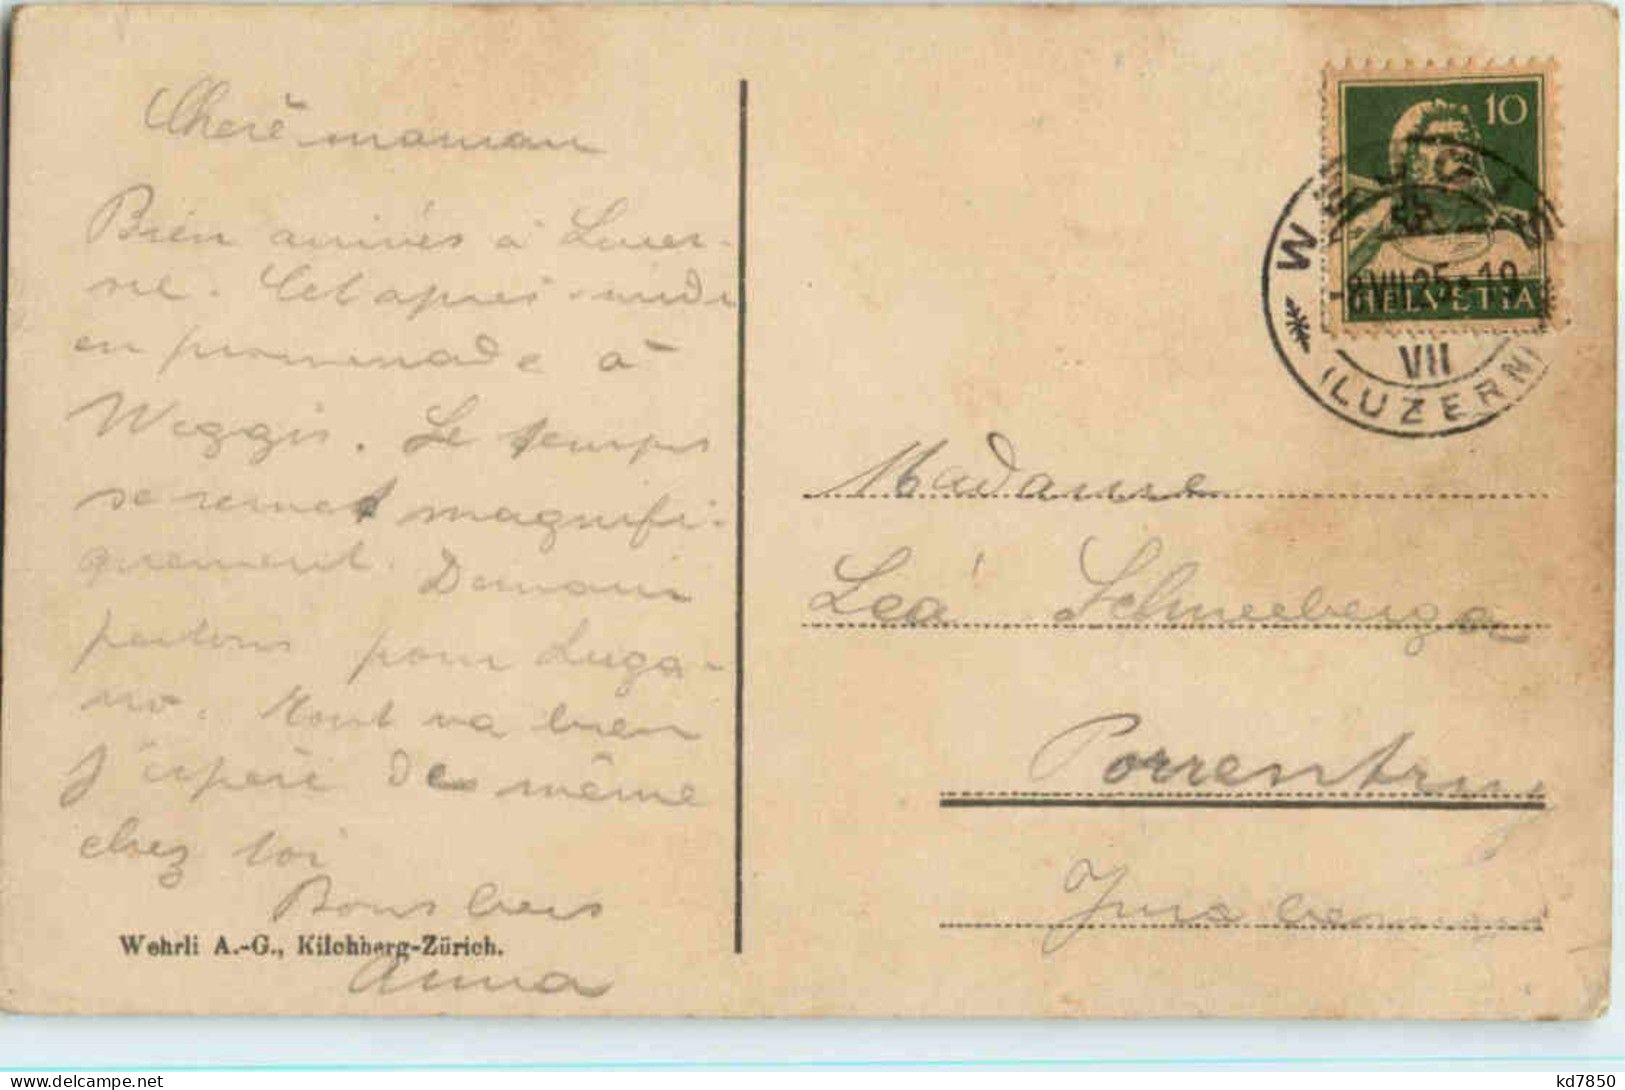 Cherè maman
Bien arrivés à Lucer-
ne. Cet après-midi
en promenade à
Weggis. Le temps
se remet magnifi-
quement. Demain
partons pour Luga-
no. Tout va bien
J'espère de même
chez toi
Bons baisers
Anna
Wehrli A.-G., Kilchberg-Zürich.
10
HELVETIA
WEGGIS
-8 VII 25 • 19
VII
(LUZERN)
Madame
Léa Schneeberger
Porrentruy
Jura bernois
kd7850